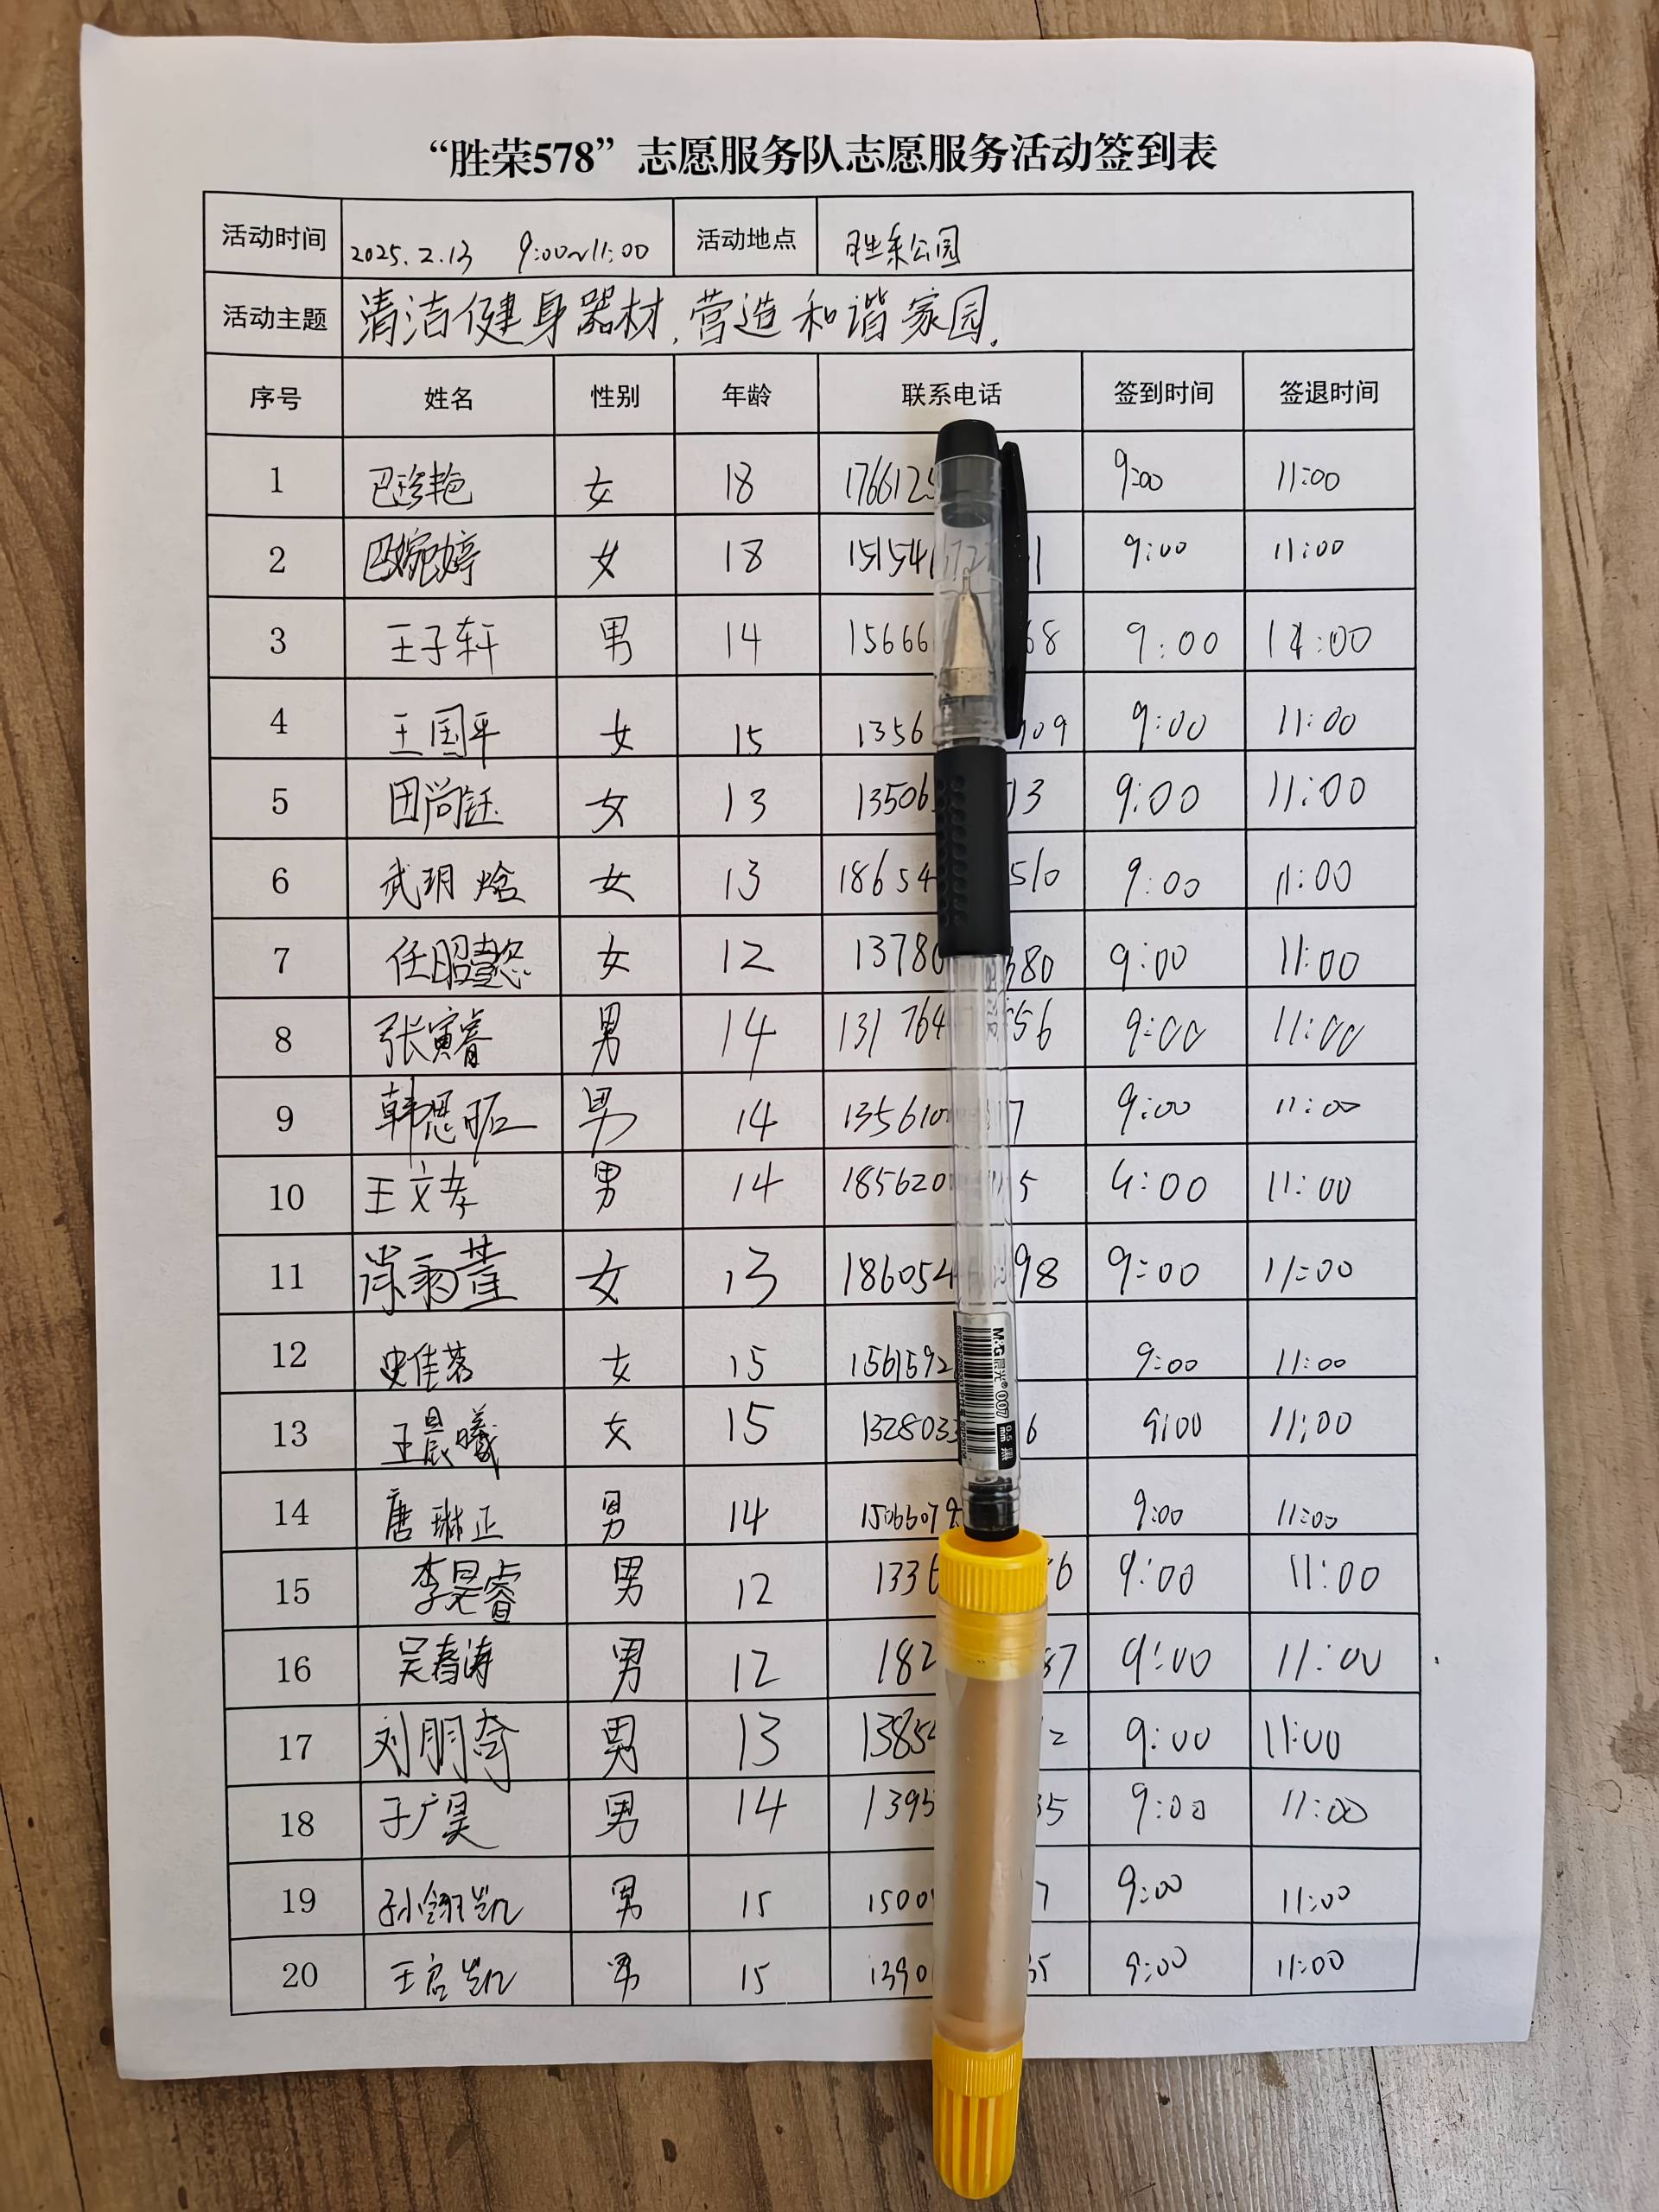 “胜荣578”志愿服务队志愿服务活动签到表
活动时间 2025.2.13 9:00~11:00 活动地点 胜荣公园
活动主题 清洁健身器材,营造和谐家园.
序号 姓名 性别 年龄 联系电话 签到时间 签退时间
1 巴珍艳 女 18 176612 9:00 11:00
2 巴婉婷 女 18 15154 1 9:00 11:00
3 王子轩 男 14 15666 68 9:00 11:00
4 王国平 女 15 1356 909 9:00 11:00
5 田尚钰 女 13 13506 13 9:00 11:00
6 武玥焓 女 13 18654 510 9:00 11:00
7 任昭懿 女 12 13780 380 9:00 11:00
8 张寅睿 男 14 131764 556 9:00 11:00
9 韩思昕 男 14 135610 7 9:00 11:00
10 王文孝 男 14 185620 5 9:00 11:00
11 肖雨萱 女 13 186054 98 9:00 11:00
12 史佳茗 女 15 1561592 9:00 11:00
13 王晨曦 女 15 132803 6 9:00 11:00
14 唐琳正 男 14 1506607 9:00 11:00
15 李昊睿 男 12 1336 6 9:00 11:00
16 吴春涛 男 12 182 87 9:00 11:00
17 刘朋奇 男 13 1385 2 9:00 11:00
18 于广昊 男 14 1395 35 9:00 11:00
19 孙翎凯 男 15 1500 7 9:00 11:00
20 王启凯 男 15 1390 35 9:00 11:00
M&G 晨光® 007 0.5mm 黑